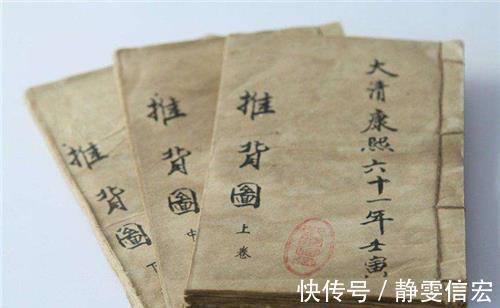 大清康熙六十一年壬寅
推背圖
上卷
推背圖
中
推背圖
下
快传号／静雯信宏